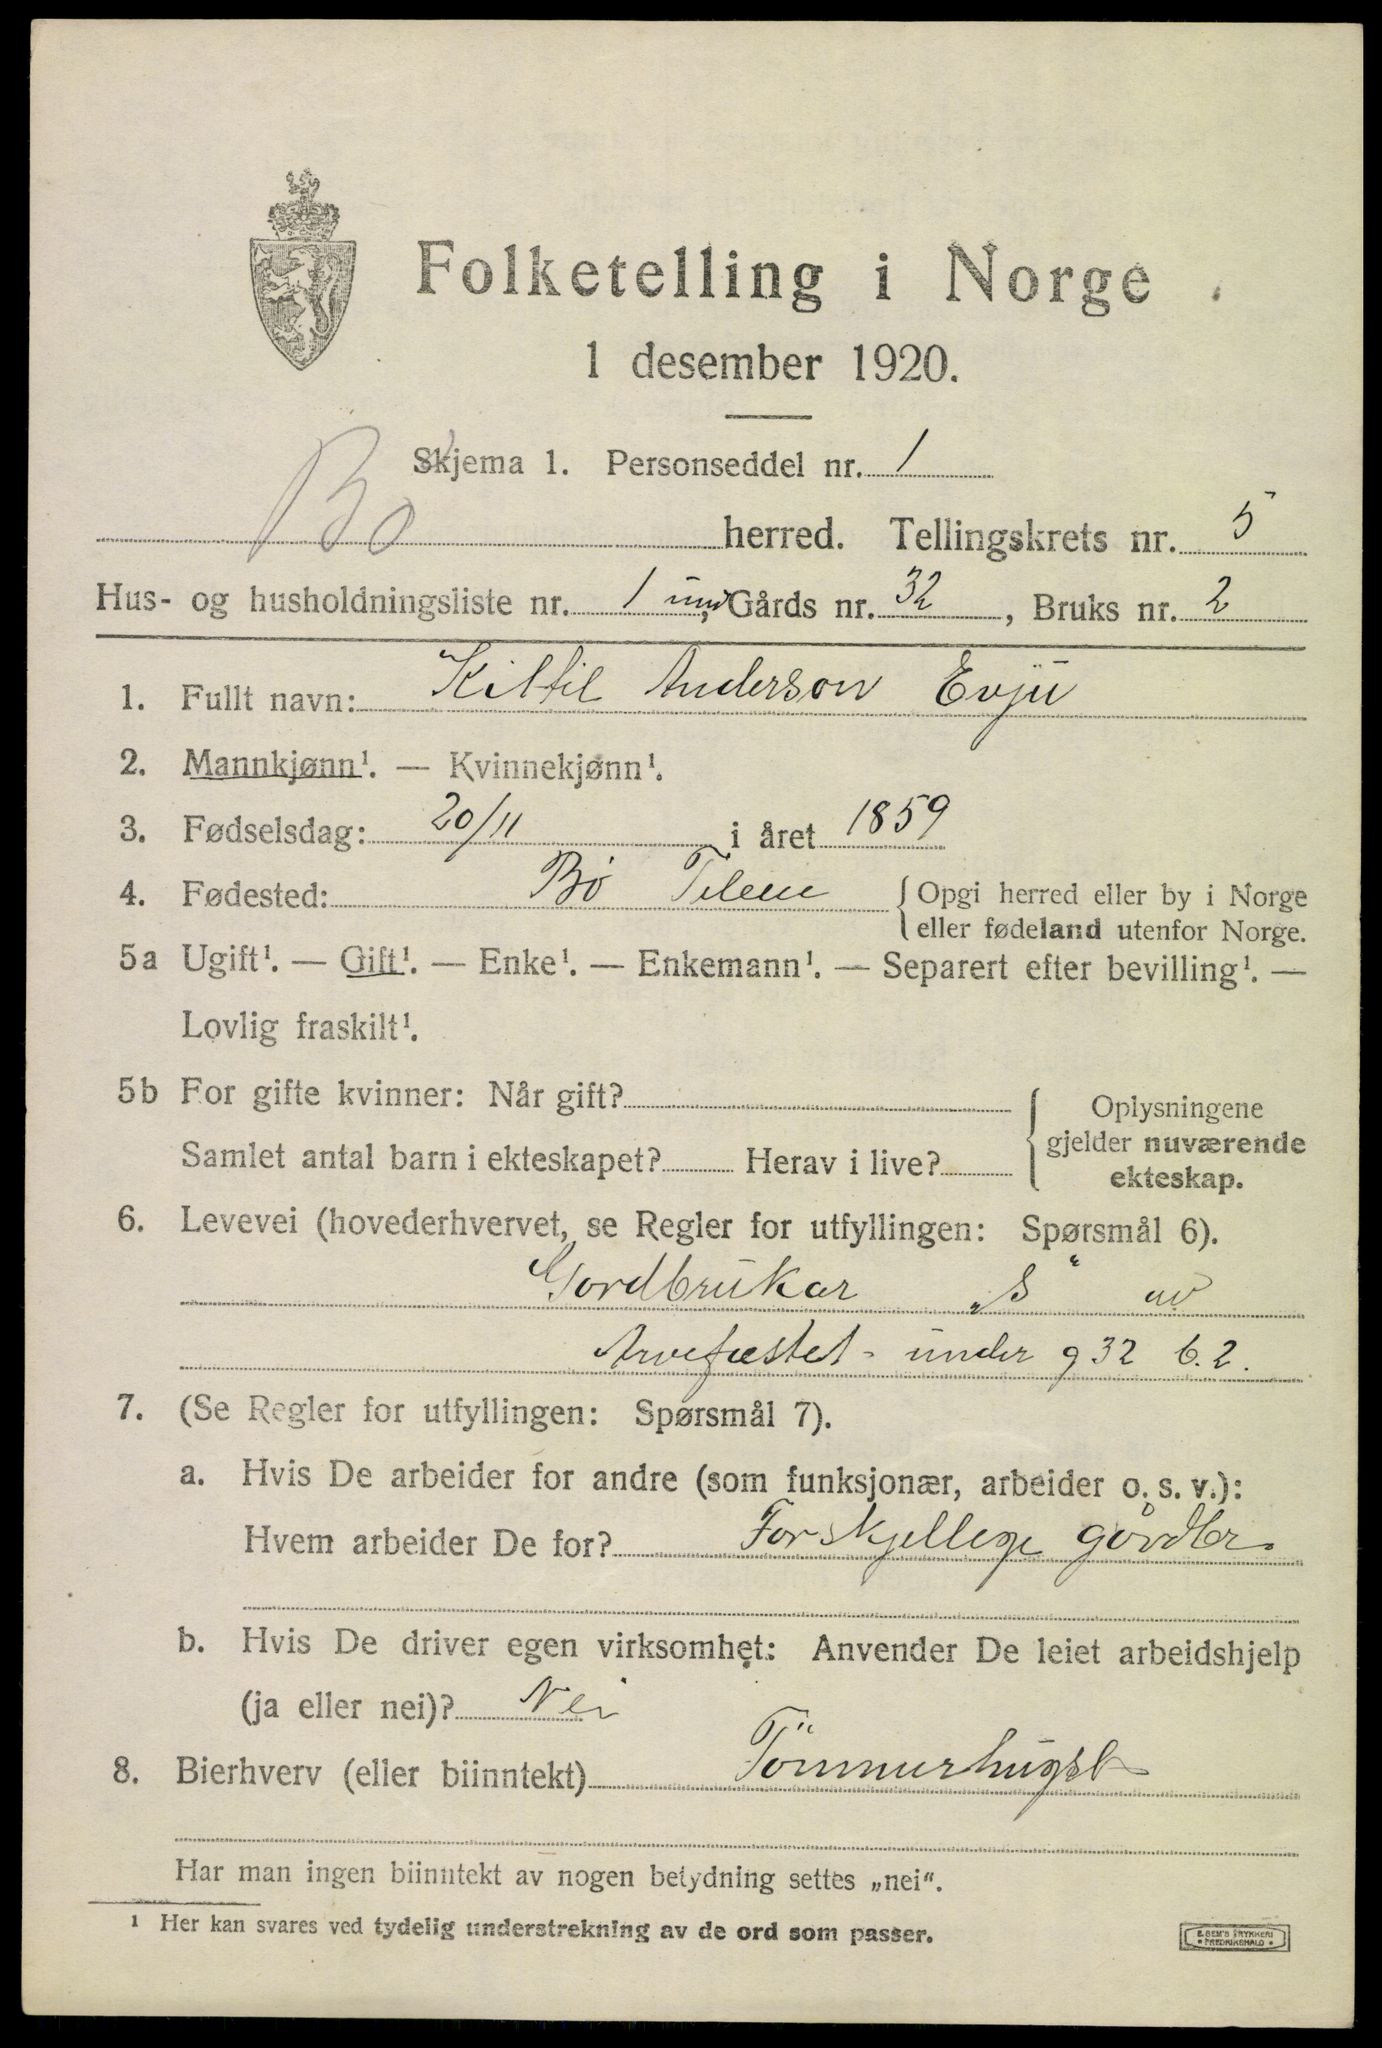 Folketelling i Norge
1 desember 1920.
Skjema 1. Personseddel nr. 1
Bø herred. Tellingskrets nr. 5
Hus- og husholdningsliste nr. 1 und, Gårds nr. 32, Bruks nr. 2
1. Fullt navn: Kittil Anderson Evju
2. Mannkjønn¹. — Kvinnekjønn¹.
3. Fødselsdag: 20/11 i året 1859
4. Fødested: Bø Telem { Opgi herred eller by i Norge
eller fødeland utenfor Norge.
5a Ugift¹. — Gift¹. — Enke¹. — Enkemann¹. — Separert efter bevilling¹. —
Lovlig fraskilt¹.
5b For gifte kvinner: Når gift? { Oplysningene
gjelder nuværende
ekteskap.
Samlet antal barn i ekteskapet? Herav i live?
6. Levevei (hovederhvervet, se Regler for utfyllingen: Spørsmål 6).
Gordbrukar „S" av
Arvefæstet - under g 32 b. 2.
7. (Se Regler for utfyllingen: Spørsmål 7).
a. Hvis De arbeider for andre (som funksjonær, arbeider o. s. v.):
Hvem arbeider De for? Forskjellege gårdbr.
b. Hvis De driver egen virksomhet: Anvender De leiet arbeidshjelp
(ja eller nei)? Nei
8. Bierhverv (eller biinntekt) Tömmerhugst
Har man ingen biinntekt av nogen betydning settes „nei".
¹ Her kan svares ved tydelig understrekning av de ord som passer.
E. SEM'S TRYKKERI
FREDRIKSHALD